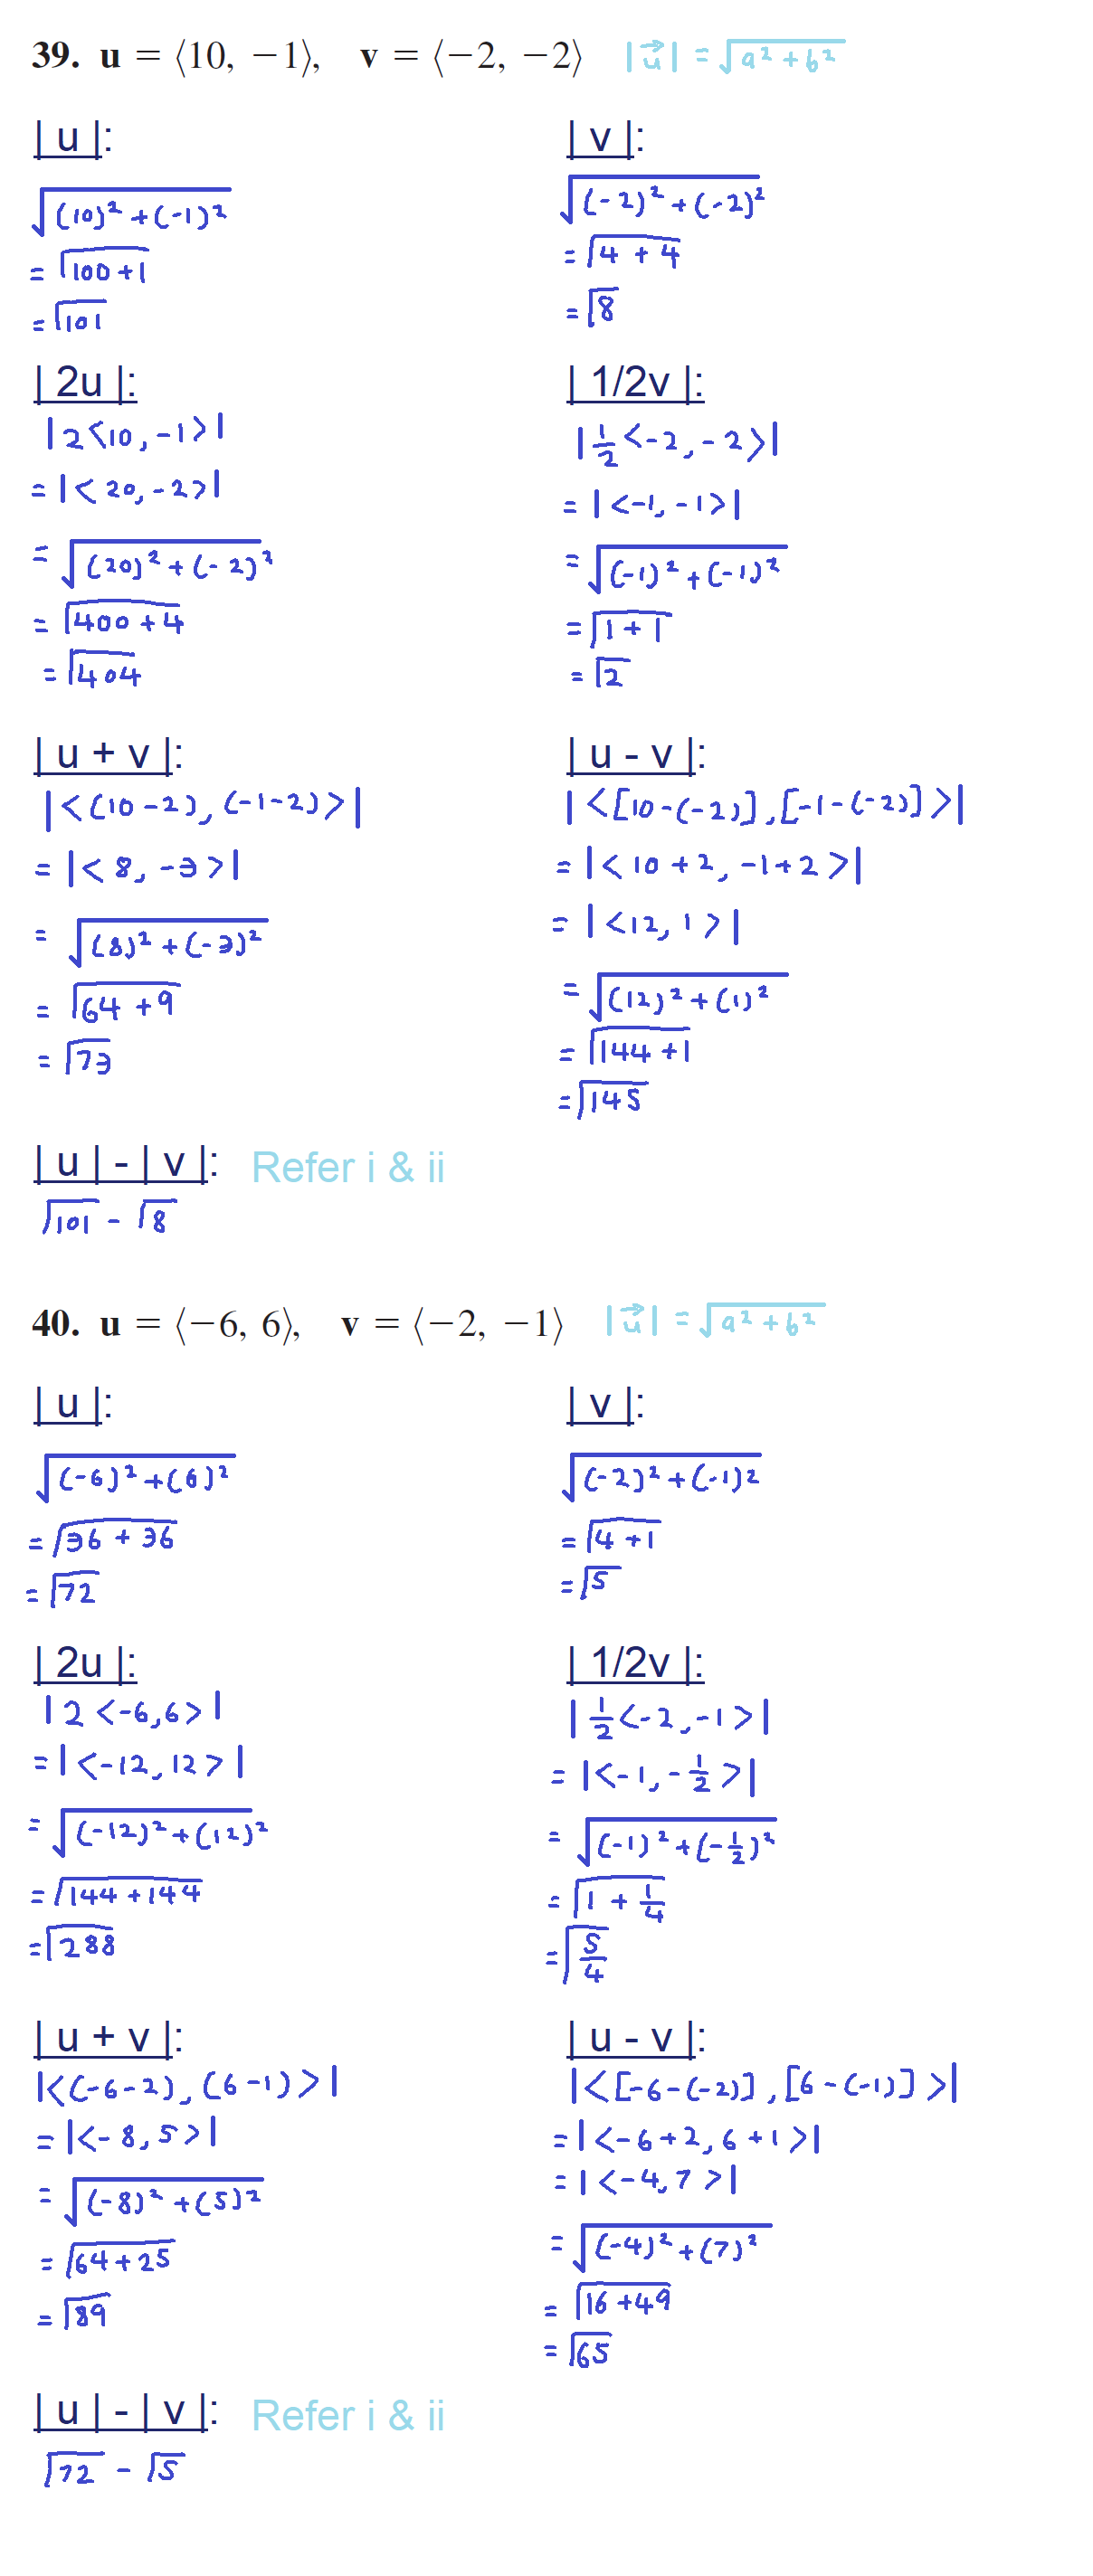 39. u = ⟨10, −1⟩, v = ⟨−2, −2⟩ |u⃗| = √(a² + b²)
| u |:
√((10)² + (-1)²)
= √(100 + 1)
= √101
| v |:
√((-2)² + (-2)²)
= √(4 + 4)
= √8
| 2u |:
|2<10, -1>|
= |<20, -2>|
= √((20)² + (-2)²)
= √(400 + 4)
= √404
| 1/2v |:
|1/2<-2, -2>|
= |<-1, -1>|
= √((-1)² + (-1)²)
= √(1 + 1)
= √2
| u + v |:
|<(10 - 2), (-1 - 2)>|
= |<8, -3>|
= √((8)² + (-3)²)
= √(64 + 9)
= √73
| u - v |:
|<[10 - (-2)], [-1 - (-2)]>|
= |<10 + 2, -1 + 2>|
= |<12, 1>|
= √((12)² + (1)²)
= √(144 + 1)
= √145
| u | - | v |: Refer i & ii
√101 - √8
40. u = ⟨−6, 6⟩, v = ⟨−2, −1⟩ |u⃗| = √(a² + b²)
| u |:
√((-6)² + (6)²)
= √(36 + 36)
= √72
| v |:
√((-2)² + (-1)²)
= √(4 + 1)
= √5
| 2u |:
|2<-6, 6>|
= |<-12, 12>|
= √((-12)² + (12)²)
= √(144 + 144)
= √288
| 1/2v |:
|1/2<-2, -1>|
= |<-1, -1/2>|
= √((-1)² + (-1/2)²)
= √(1 + 1/4)
= √(5/4)
| u + v |:
|<(-6 - 2), (6 - 1)>|
= |<-8, 5>|
= √((-8)² + (5)²)
= √(64 + 25)
= √89
| u - v |:
|<[-6 - (-2)], [6 - (-1)]>|
= |<-6 + 2, 6 + 1>|
= |<-4, 7>|
= √((-4)² + (7)²)
= √(16 + 49)
= √65
| u | - | v |: Refer i & ii
√72 - √5